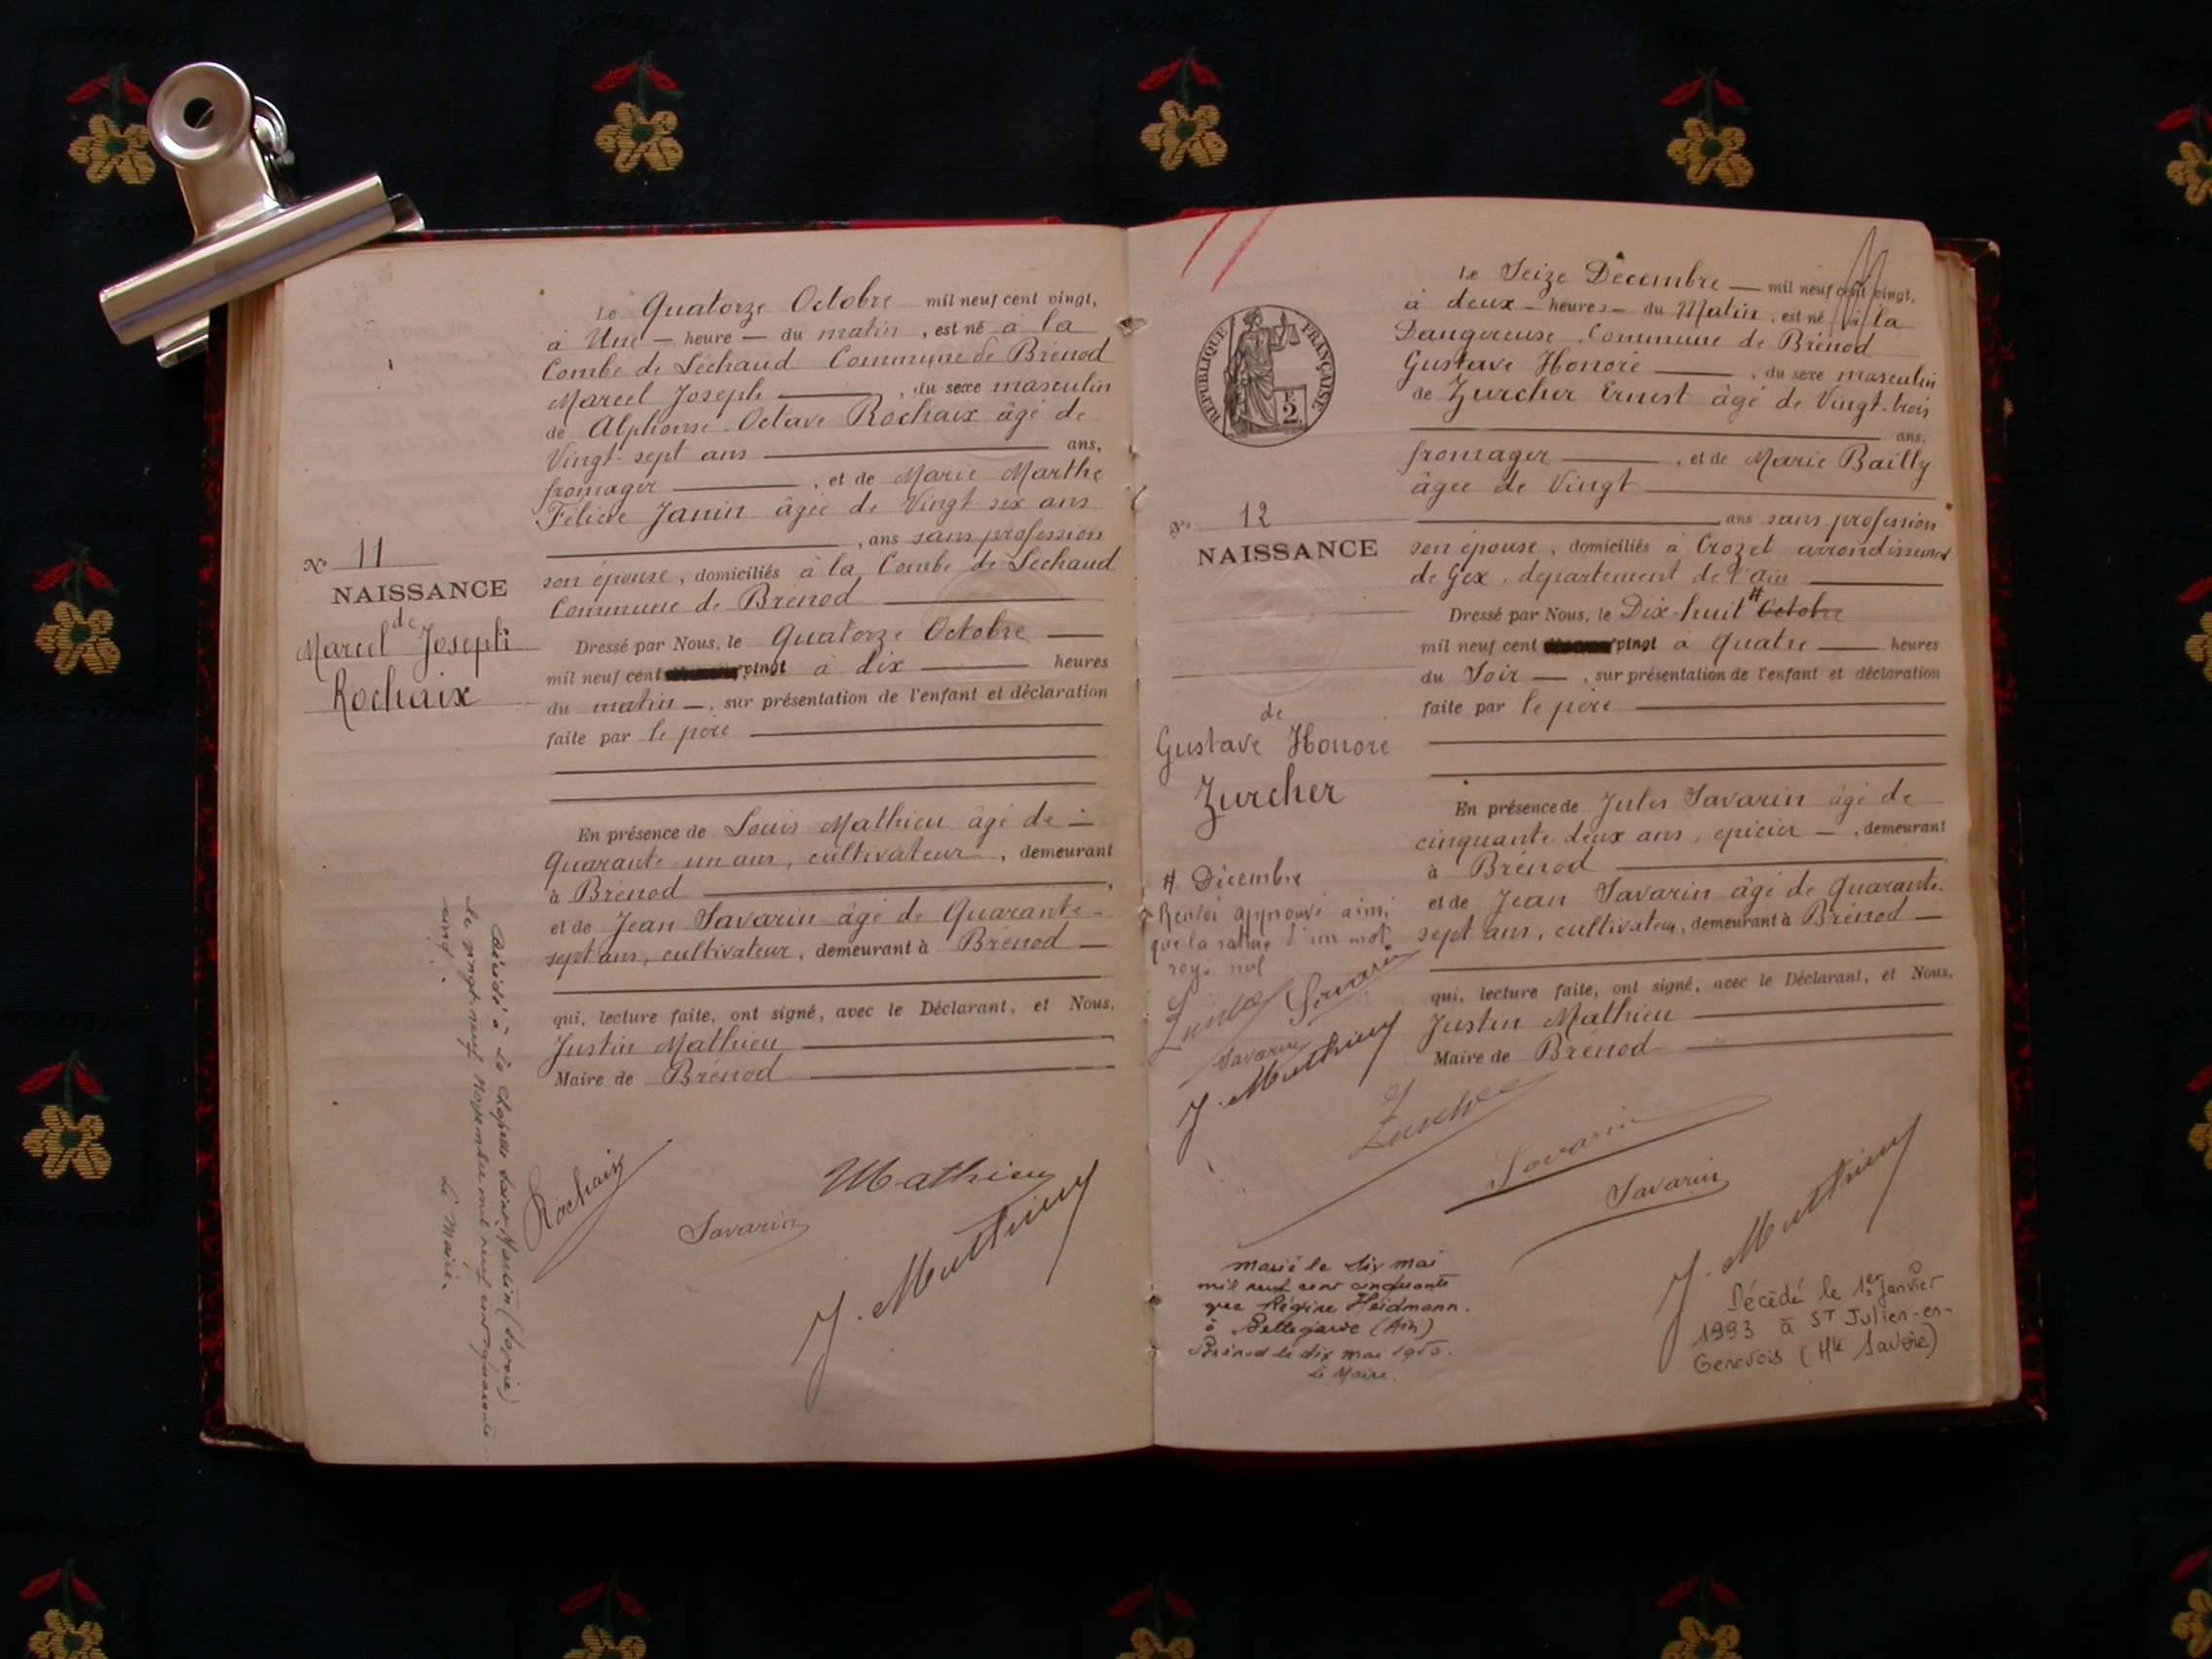 Le Quatorze Octobre mil neuf cent vingt,
à Une — heure — du matin, est né à la
Combe de Léchaud Commune de Brénod
Marcel Joseph —, du sexe masculin
de Alphonse Octave Rochaix âgé de
Vingt-sept ans — ans,
fromager —, et de Marie Marthe
Félicie Janin âgée de Vingt-six ans
—, ans sans profession
son épouse, domiciliés à la Combe de Léchaud
Commune de Brénod —
Dressé par Nous, le Quatorze Octobre —
mil neuf cent vingt à dix — heures
du matin —, sur présentation de l'enfant et déclaration
faite par le père —
En présence de Louis Mathieu âgé de —
Quarante-un ans, cultivateur, demeurant
à Brénod —,
et de Jean Savarin âgé de Quarante-
sept ans, cultivateur, demeurant à Brénod —
qui, lecture faite, ont signé, avec le Déclarant, et Nous,
Justin Mathieu —
Maire de Brénod —
Rochaix
Mathieu
Savarin
J. Mathieu
N° 11
NAISSANCE
de
Marcel Joseph
Rochaix
Décédé à La Chapelle Saint-Martin (Savoie)
le vingt-neuf Novembre mil neuf cent
cinq.
Le Maire.
Le Seize Décembre — mil neuf cent vingt,
à deux — heures — du Matin, est né à la
Dangereuse Commune de Brénod
Gustave Honoré —, du sexe masculin
de Zurcher Ernest âgé de Vingt-trois
— ans,
fromager —, et de Marie Bailly
âgée de Vingt —
—, ans sans profession
son épouse, domiciliés à Crozet arrondissement
de Gex, département de l'Ain —
Dressé par Nous, le Dix-huit # Octobre
mil neuf cent vingt à Quatre — heures
du Soir —, sur présentation de l'enfant et déclaration
faite par le père —
En présence de Jules Savarin âgé de
cinquante-deux ans, épicier —, demeurant
à Brénod —
et de Jean Savarin âgé de Quarante-
sept ans, cultivateur, demeurant à Brénod —
qui, lecture faite, ont signé, avec le Déclarant, et Nous,
Justin Mathieu —
Maire de Brénod —
RÉPUBLIQUE FRANÇAISE
2 F
N° 12
NAISSANCE
de
Gustave Honoré
Zurcher
# Décembre
Renvoi approuvé ainsi
que la rature d'un mot
rayé nul
Zurcher Savarin
Savarin
J. Mathieu
Zurcher
Savarin
Savarin
J. Mathieu
Marié le dix mai
mil neuf cent cinquante
avec Régine Heidmann.
à Bellegarde (Ain)
Brénod le dix mai 1950.
Le Maire.
Décédé le 1er janvier
1993 à St Julien-en-
Genevois (Hte Savoie)